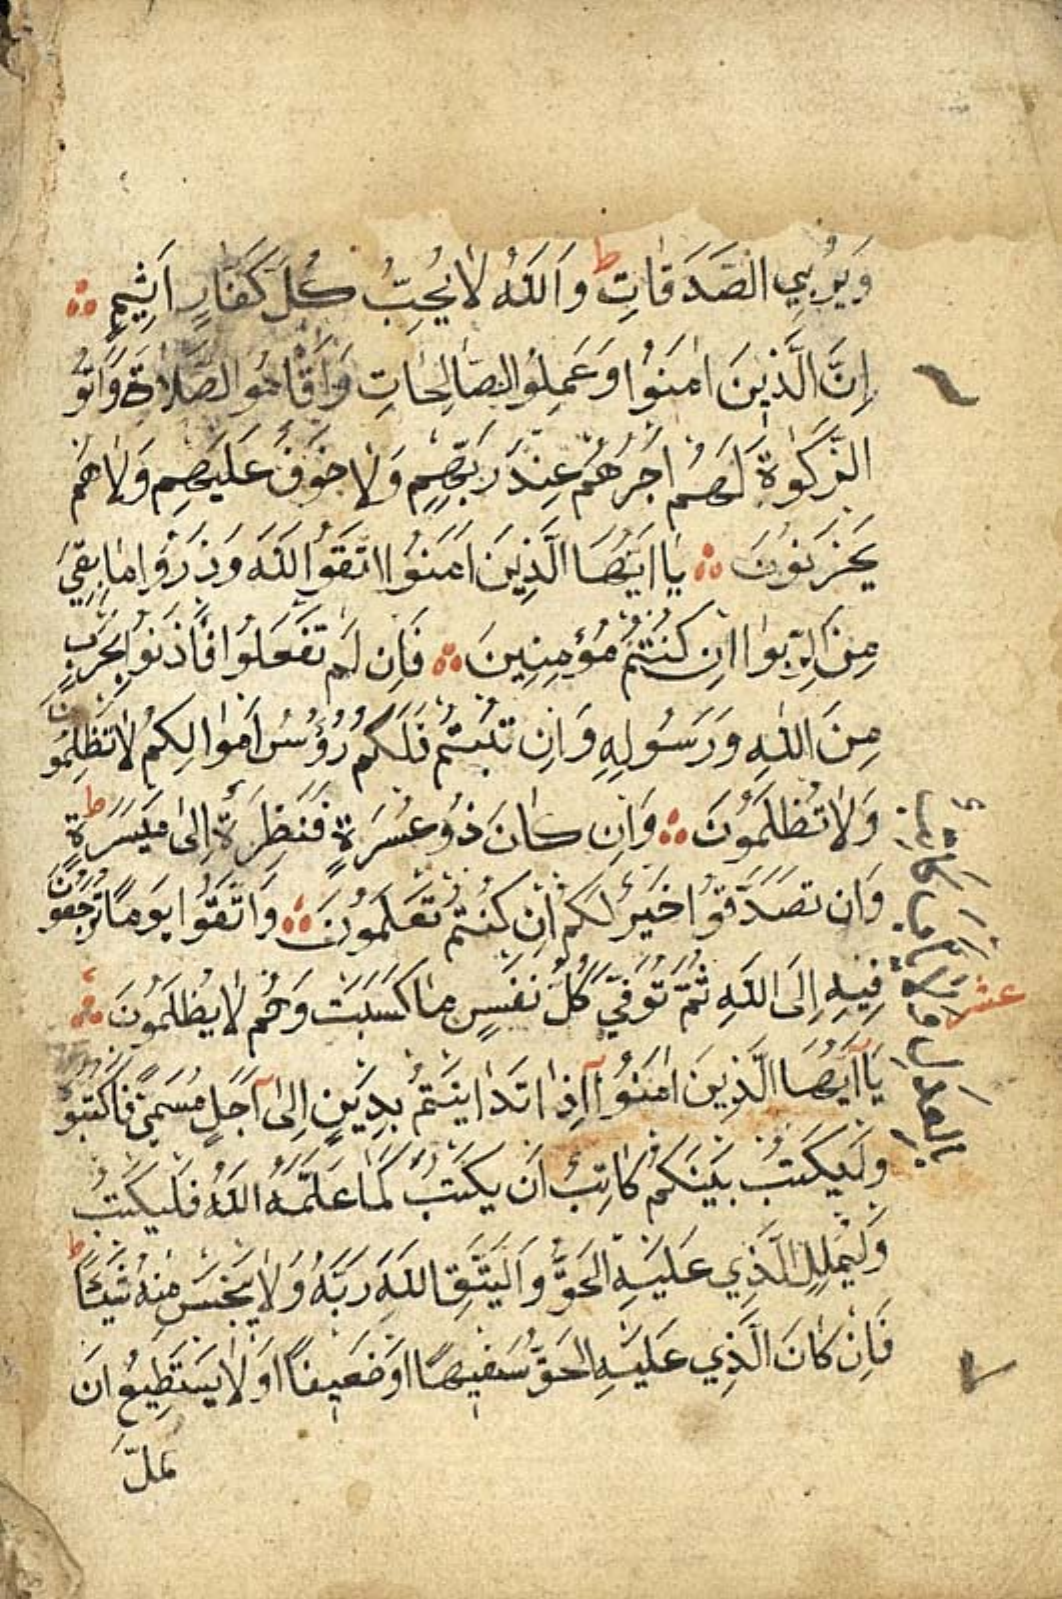 وَيُرْبِي الصَّدَقَاتِ ط وَاللَّهُ لَا يُحِبُّ كُلَّ كَفَّارٍ اَثِيمٍ
إِنَّ الَّذِينَ اٰمَنُوا وَعَمِلُوا الصَّالِحَاتِ وَاَقَامُوا الصَّلَاةَ وَاٰتَوُ
الزَّكٰوةَ لَهُمْ اَجْرُهُمْ عِنْدَ رَبِّهِمْ وَلَا خَوْفٌ عَلَيْهِمْ وَلَا هُمْ
يَحْزَنُونَ يَا اَيُّهَا الَّذِينَ اٰمَنُوا اتَّقُوا اللَّهَ وَذَرُوا مَا بَقِيَ
مِنَ الرِّبٰوا اِنْ كُنْتُمْ مُؤْمِنِينَ فَاِنْ لَمْ تَفْعَلُوا فَأْذَنُوا بِحَرْبٍ
مِنَ اللَّهِ وَرَسُولِهِ وَاِنْ تُبْتُمْ فَلَكُمْ رُؤُسُ اَمْوَالِكُمْ لَا تَظْلِمُونَ
وَلَا تُظْلَمُونَ وَاِنْ كَانَ ذُو عُسْرَةٍ فَنَظِرَةٌ اِلٰى مَيْسَرَةٍ ط
وَاَنْ تَصَدَّقُوا خَيْرٌ لَكُمْ اِنْ كُنْتُمْ تَعْلَمُونَ وَاتَّقُوا يَوْمًا تُرْجَعُونَ
فِيهِ اِلَى اللَّهِ ثُمَّ تُوَفّٰي كُلُّ نَفْسٍ مَا كَسَبَتْ وَهُمْ لَا يُظْلَمُونَ
عشر
يَا اَيُّهَا الَّذِينَ اٰمَنُوا اِذَا تَدَايَنْتُمْ بِدَيْنٍ اِلٰى اَجَلٍ مُسَمًّى فَاكْتُبُوهُ
وَلْيَكْتُبْ بَيْنَكُمْ كَاتِبٌ اَنْ يَكْتُبَ كَمَا عَلَّمَهُ اللَّهُ فَلْيَكْتُبْ
وَلْيُمْلِلِ الَّذِي عَلَيْهِ الْحَقُّ وَالْيَتَّقِ اللَّهَ رَبَّهُ وَلَا يَبْخَسْ مِنْهُ شَيْئًا ط
فَاِنْ كَانَ الَّذِي عَلَيْهِ الْحَقُّ سَفِيهًا اَوْ ضَعِيفًا اَوْ لَا يَسْتَطِيعُ اَنْ
يملّ